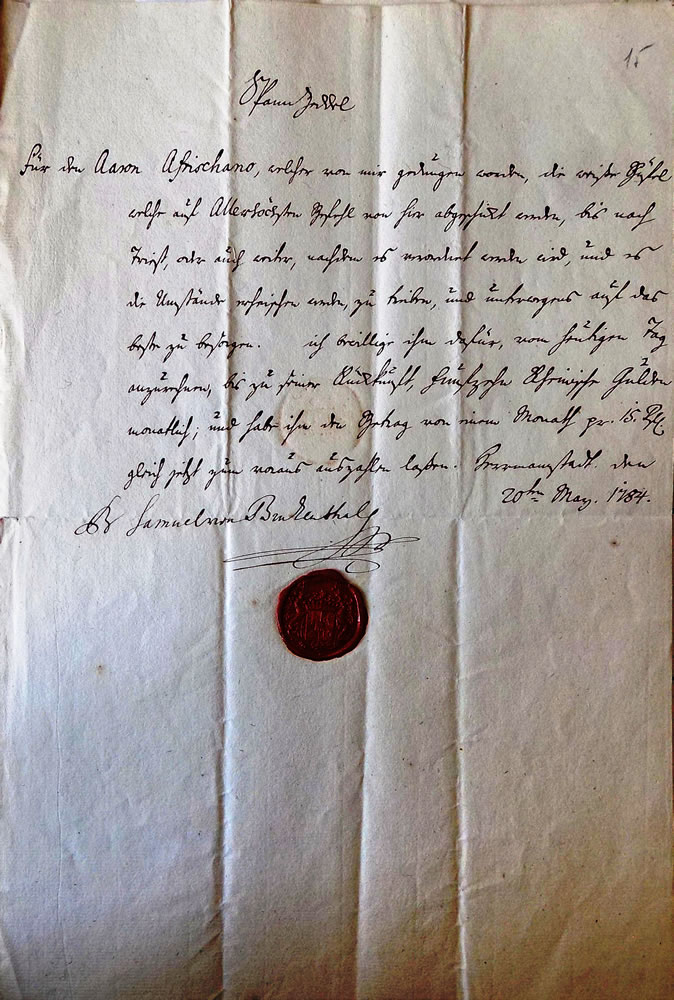 15
Spann Zeddel
Für den Aaron Afrischano, welcher von mir gedungen worden, die weiße Büffel
welche auf Allerhöchsten Befehl von hier abgeschickt werden, bis nach
Triest, oder auch weiter, nachdem es verordnet werden wird, und es
die Umstände erheischen werden, zu treiben, und unterwegens auf das
beste zu besorgen. ich bewillige ihm dafür, vom heutigen Tag
anzurechnen, bis zu seiner Rückkunft, funfzehn Rheinische Gulden
monatlich; und habe ihm den Betrag von einem Monath pr. 15. Rfl.
gleich jetzt zum voraus auszahlen laßen. Herrmanstadt. den
20ten May. 1784.
Br Samuel von Brukenthal